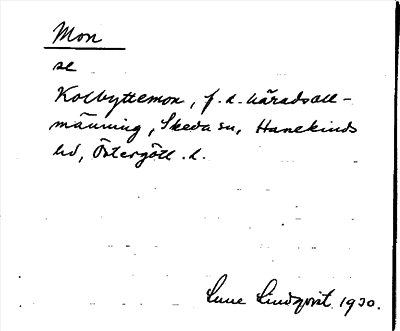 Mon
se
Kolbyttemon, f. d. häradsall-
männing, Skeda sn, Hanekinds
hd, Östergötl. l.
Sune Lindqvist. 1930.